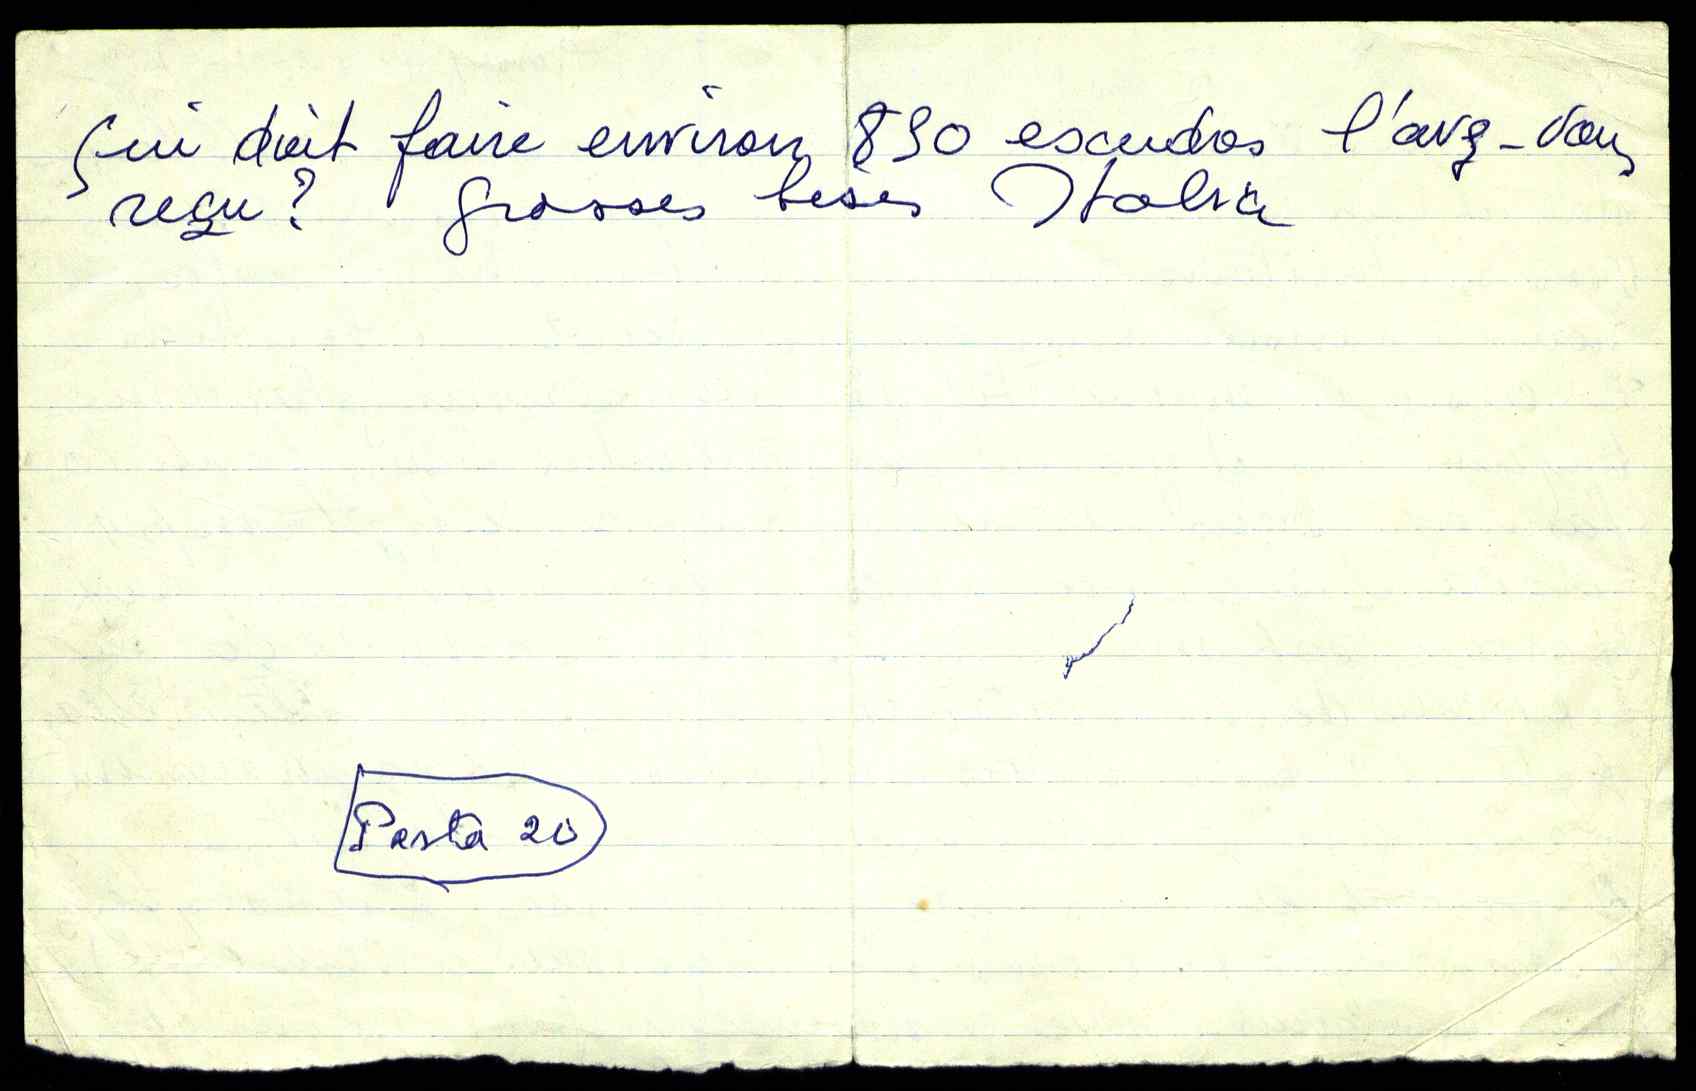 qui doit faire environ 890 escudos l'avez-vous
reçu? Grosses bises Italia
Pasta 20